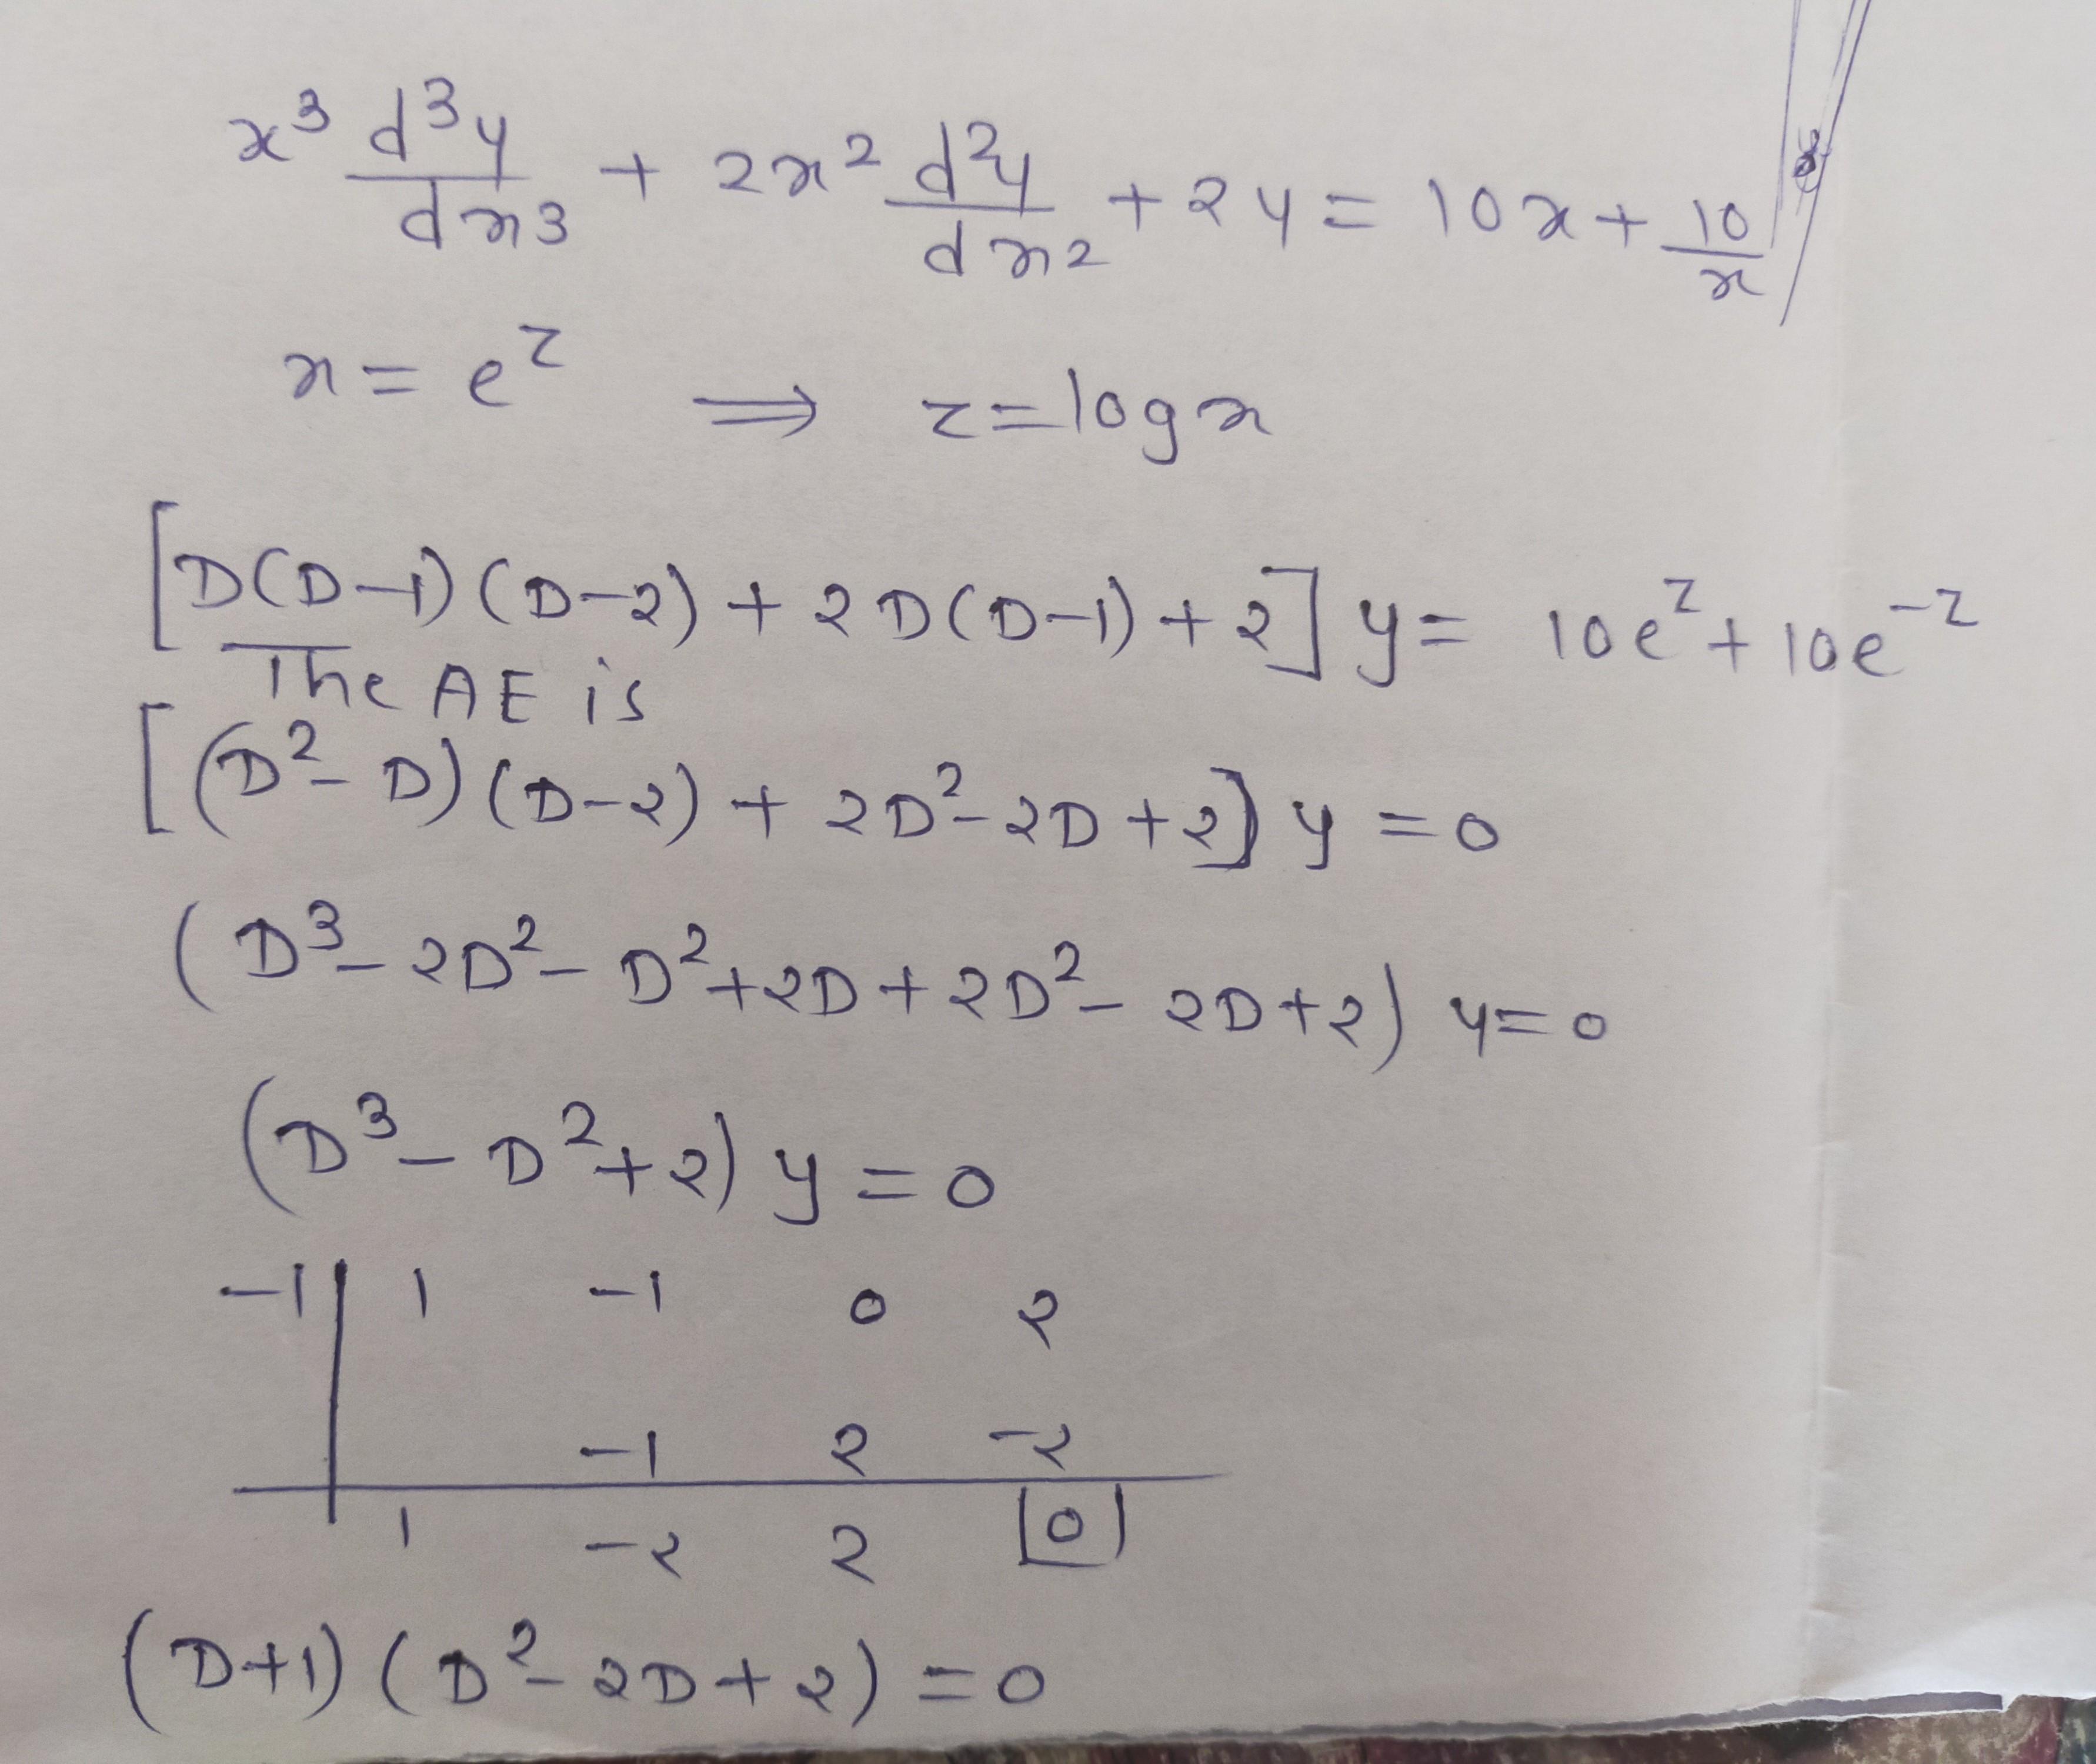 x³ d³y/dx³ + 2x² d²y/dx² + 2y = 10x + 10/x
x = e^z ⟹ z = log x
[D(D-1)(D-2) + 2D(D-1) + 2] y = 10e^z + 10e^-z
The AE is
[(D² - D)(D-2) + 2D² - 2D + 2] y = 0
(D³ - 2D² - D² + 2D + 2D² - 2D + 2) y = 0
(D³ - D² + 2) y = 0
-1 | 1 -1 0 2
-1 2 -2
1 -2 2 |0|
(D+1)(D² - 2D + 2) = 0